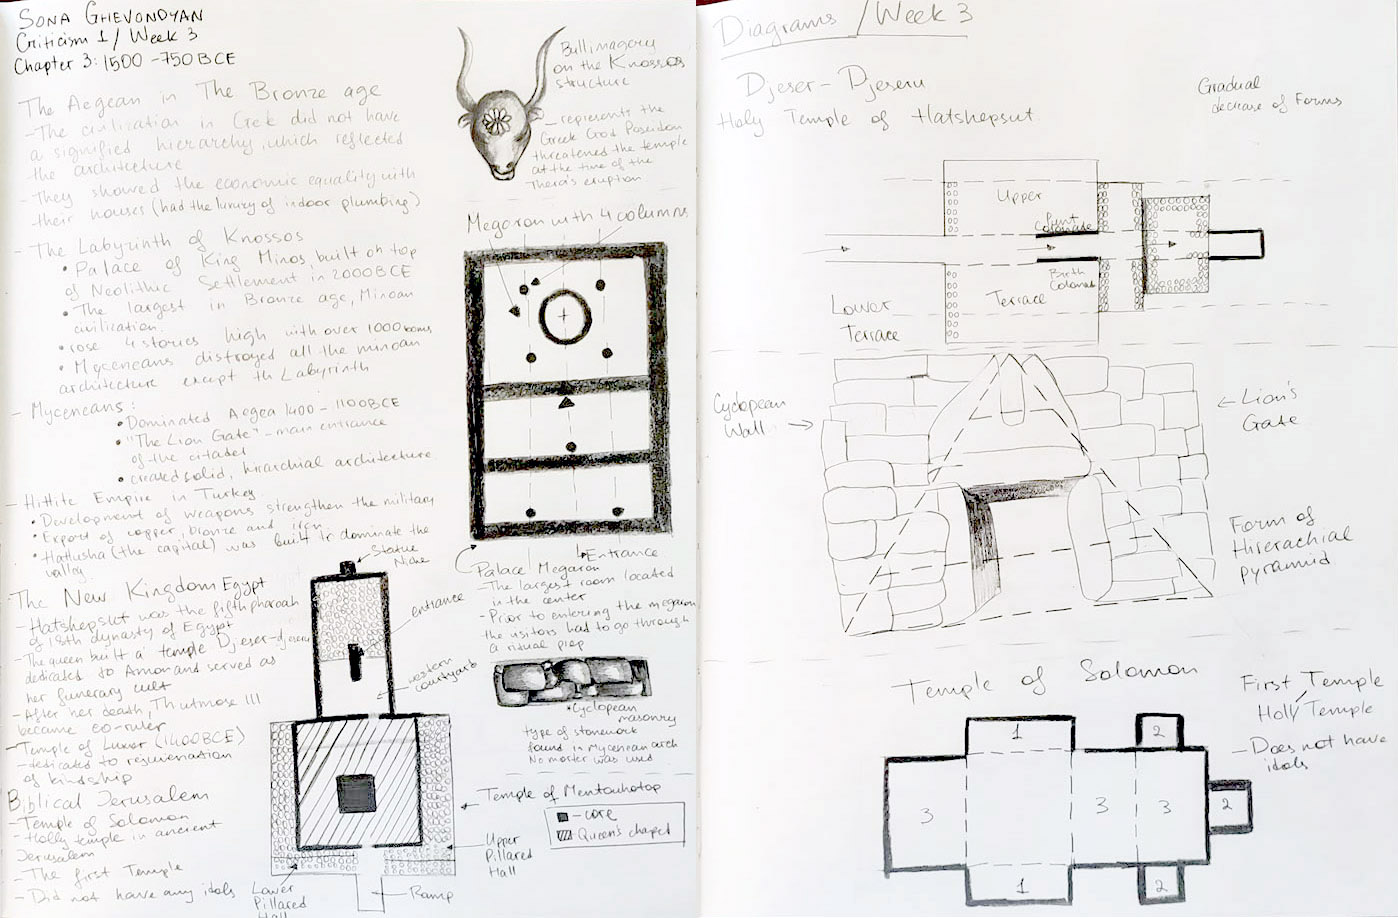 SONA GHEVONDYAN
Criticism 1 / Week 3
Chapter 3: 1500 - 750 BCE
The Aegean in The Bronze age
- The civilization in Grek did not have
a signified hierarchy, which reflected
the architecture
- They showed the economic equality with
their houses (had the luxury of indoor plumbing)
- The Labyrinth of Knossos
• Palace of King Minos built on top
of Neolithic Settlement in 2000BCE
• The largest in Bronze age, Minoan
civilization.
• rose 4 stories high with over 1000 rooms
• Myceneans distroyed all the minoan
architecture except th Labyrinth
- Myceneans:
• Dominated Aegea 1400 - 1100BCE
• "The Lion Gate" - main entrance
of the citadel
• created solid, hirarchial architecture.
- Hittite Empire in Turkey
• Development of weapons strengthen the military
• Export of copper, bronze and iron
• Hattusha (the capital) was built to dominate the
valley
The New Kingdom Egypt
- Hatshepsut was the fifth pharoah
of 18th dynasty of Egypt
- The queen built a temple Djeser-djeseru
dedicated to Amon and served as
her funerary cult
- After her death, Thutmose III
became co-ruler
- Temple of Luxor (1400BCE)
- dedicated to rejuvenation
of kindship
Biblical Jerusalem
- Temple of Solomon
- Holly temple in ancient
Jerusalem
- The first Temple
- Did not have any idols
Bull imagery
on the Knossos
structure
- represents the
Greek God Poseidon
threatened the temple
at the time of the
Thera's eruption
Megaron with 4 columns
Entrance
Palace Megaron
- The largest room located
in the center
- Prior to entering the megaron
the visitors had to go through
a ritual prep
• Cyclopean
masonry
type of stonework
found in Mycenean arch
No morter was used
Statue
Niche
entrance
western
courtyard
Temple of Mentouhotop
- core
Queen's chapel
Upper
Pillared
Hall
Lower
Pillared
Hall
Ramp
Diagrams / Week 3
Djeser - Djeseru
Holy Temple of Hatshepsut
Gradual
decrease of Forms
Upper
Punt
Colonade
Birth
Colonad
Terrace
Lower
Terrace
Cyclopean
Wall
Lion's
Gate
Form of
Hirerachial
pyramid
Temple of Solomon
First Temple
Holly Temple
- Does not have
idols
1
2
3
3
3
2
1
2